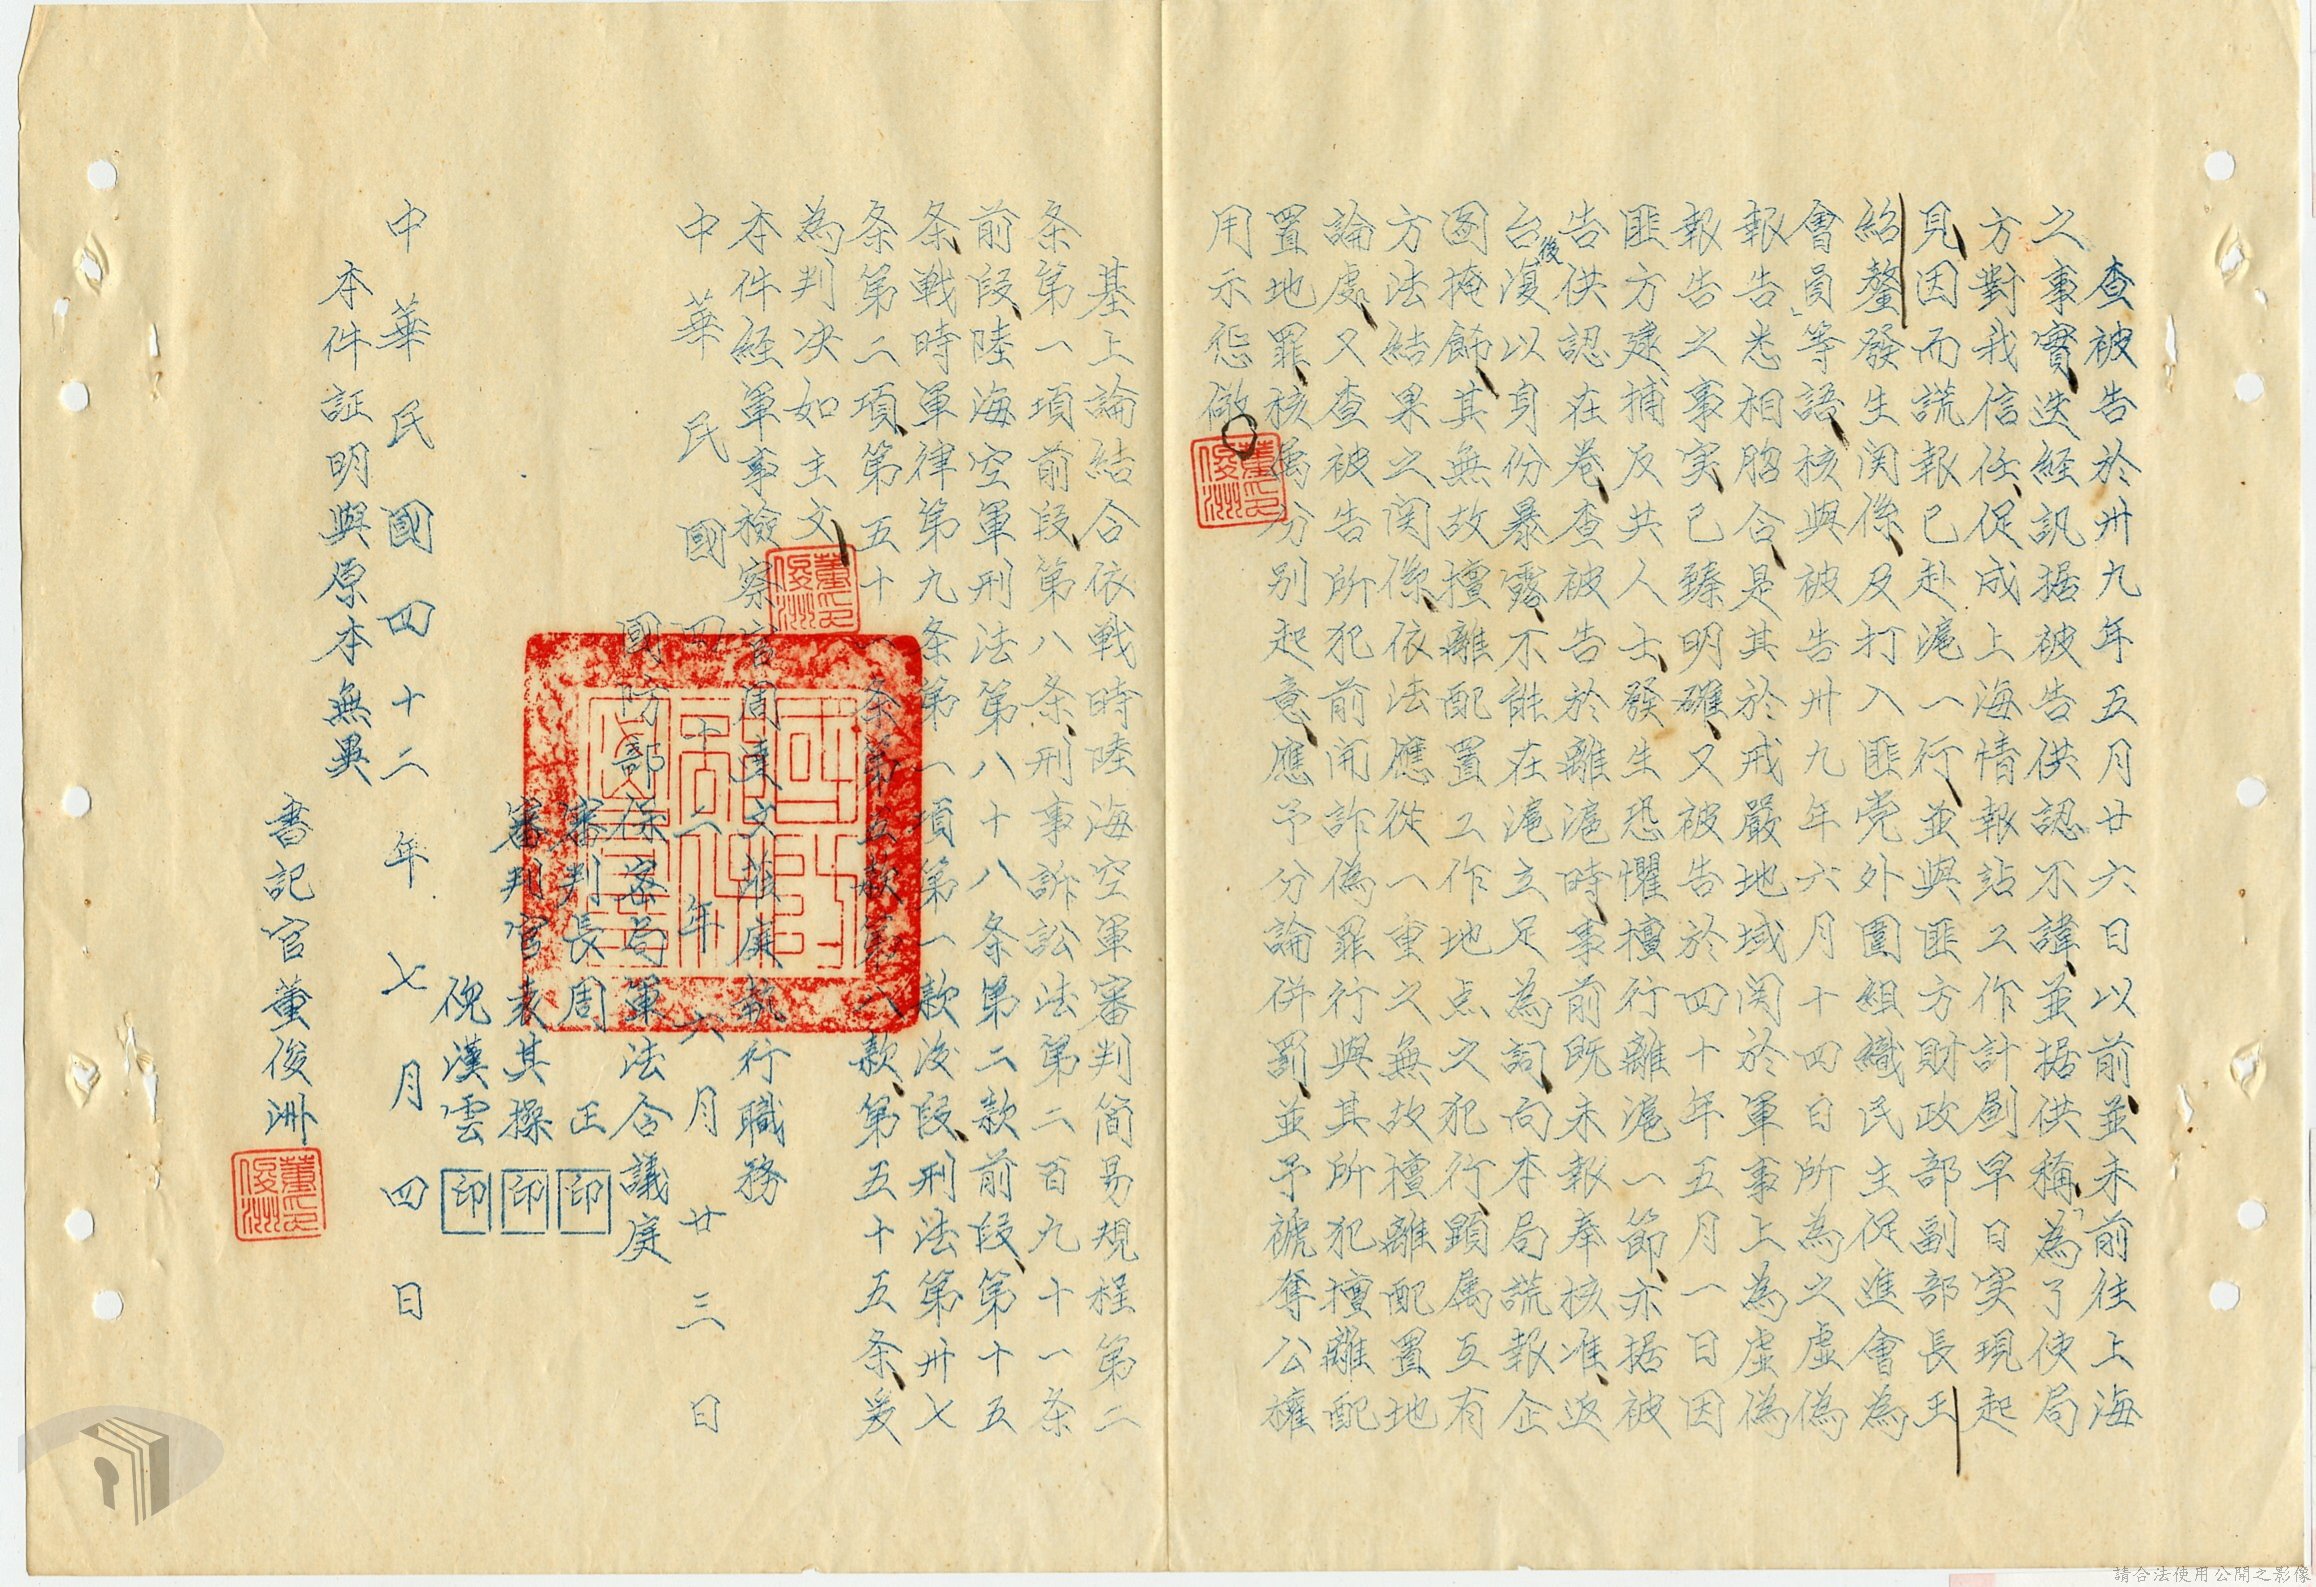 查被告於卅九年五月廿六日以前並未前往上海
之事實迭經訊据被告供認不諱並据供稱「為了使局
方對我信任促成上海情報站工作計劃早日实現起
見因而謊報已赴滬一行並與匪方財政部副部長王
紹鏊發生関係及打入匪党外圍組織民主促進會為
會員」等語核與被告卅九年六月十四日所為之虛偽
報告悉相脗合是其於戒嚴地域関於軍事上為虛偽
報告之事实已臻明確又被告於四十年五月一日因
匪方逮捕反共人士發生恐懼擅行離滬一節亦据被
告供認在卷查被告於離滬時事前既未報奉核准返
台後復以身份暴露不能在滬立足為詞向本局謊報企
圖掩飾其無故擅離配置工作地点之犯行顕属互有
方法結果之関係依法應從一重之無故擅離配置地
論處又查被告所犯前開詐偽罪行與其所犯擅離配
置地罪核属分別起意應予分論併罰並予褫奪公權
用示懲儆
基上論結合依戦時陸海空軍審判简易規程第二
条第一項前段第八条刑事訴訟法第二百九十一条
前段陸海空軍刑法第八十八条第二款前段第十五
条戦時軍律第九条第一項第一款後段刑法第卅七
条第二項第五十一条第五款第八款第五十五条爰
為判决如主文
本件經軍事檢察官周達文蒞庭執行職務
中華民國四十二年六月廿三日
國防部保密局軍法合議庭
審判長周正 印
審判官袁其操 印
倪漢雲 印
中華民國四十二年七月四日
本件証明與原本無異
書記官董俊洲
董俊洲印
請合法使用公開之影像